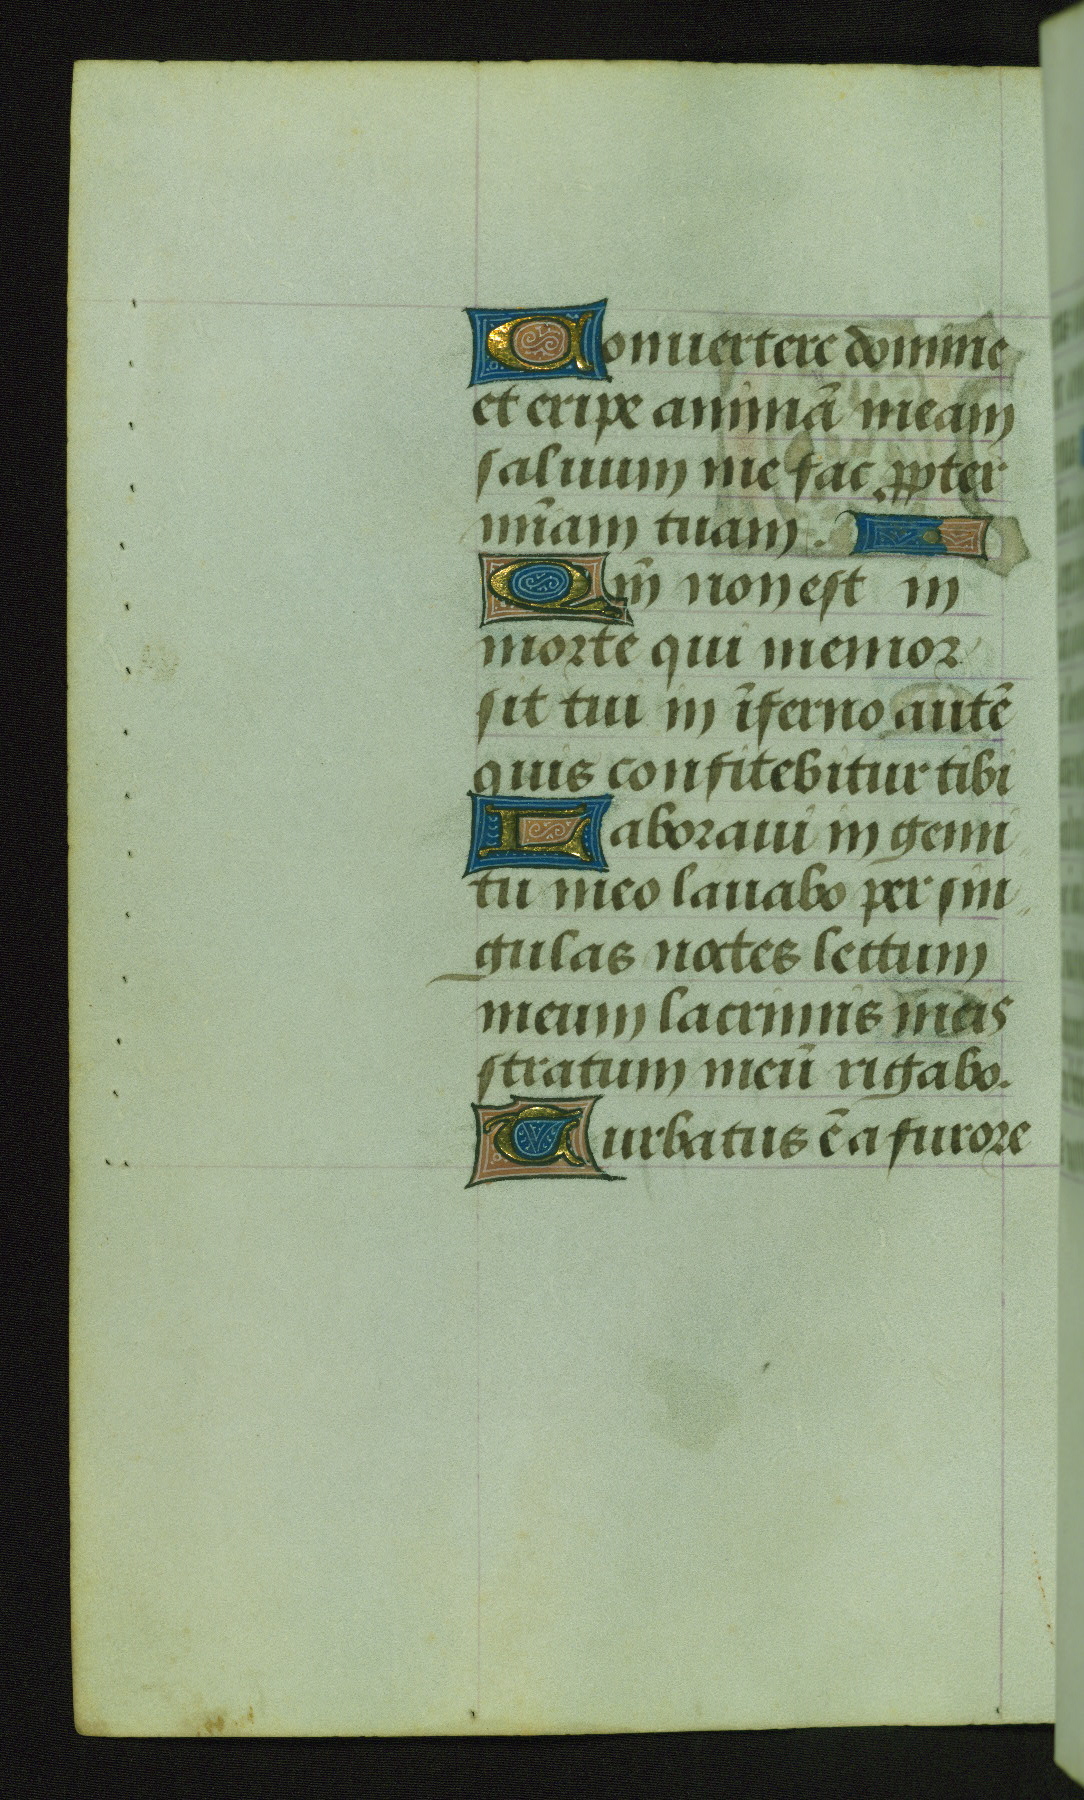 Conuertere domine
et eripe animā meam
saluum me fac ꝓpter
mi̅am tuam.
Qm̄ non est in
morte qui memor
sit tui in īferno autē
quis confitebitur tibi
Laboraui in gemi
tu meo lauabo per sin
gulas noctes lectum
meum lacrimis meis
stratum meū rigabo.
Turbatus ē a furore